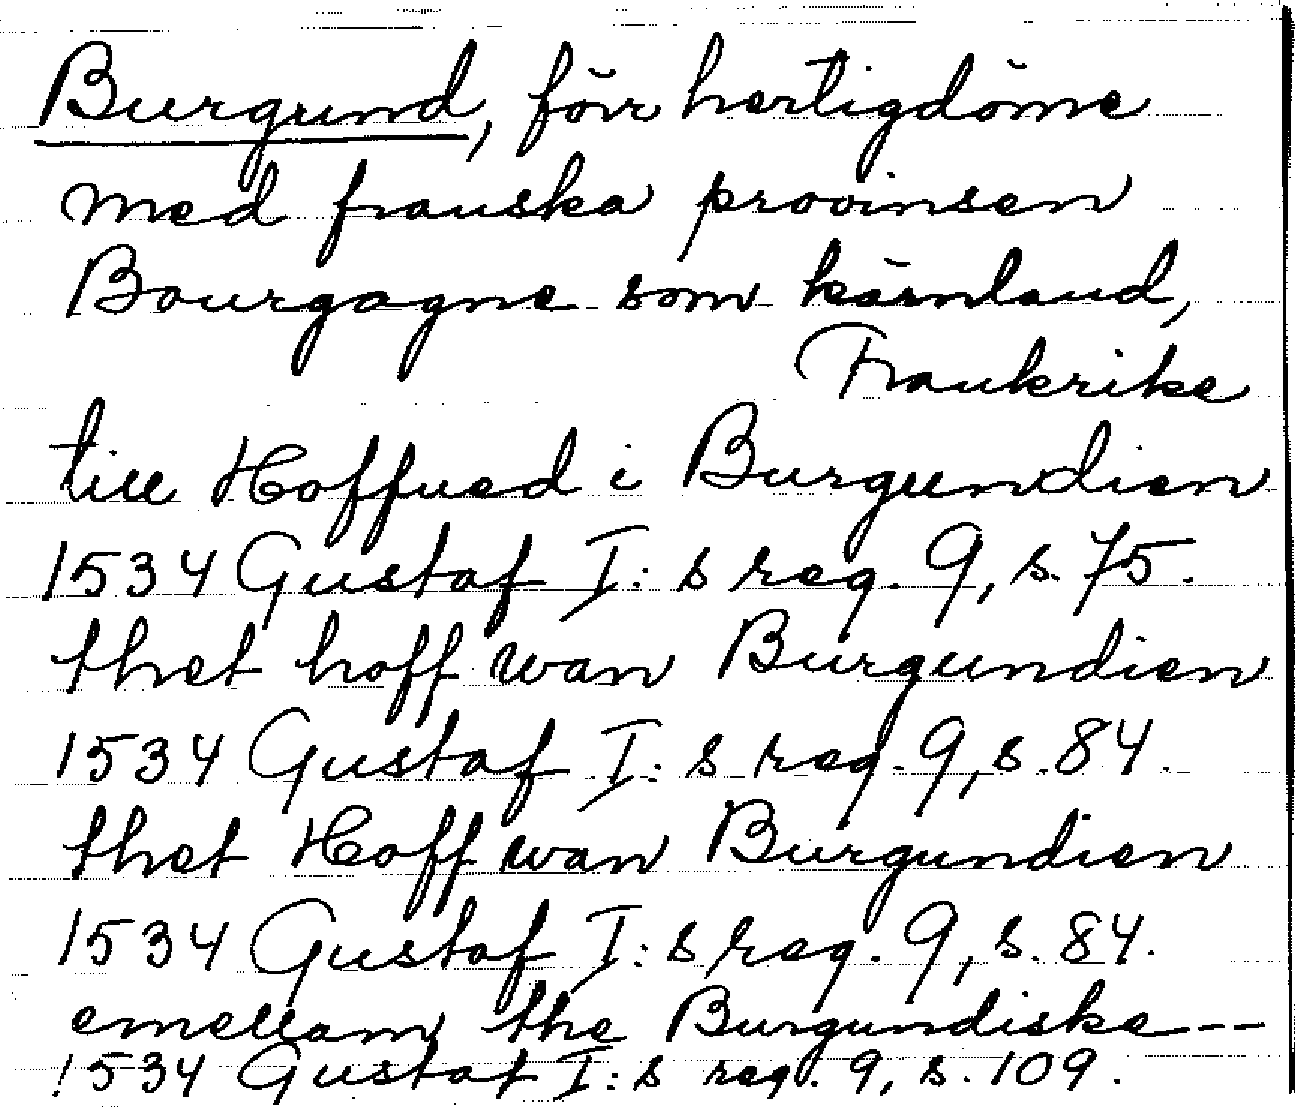 Burgund, förr hertigdöme
med franska provinsen
Bourgogne som kärnland,
Frankrike
till Hoffued i Burgundien
1534 Gustaf I:s reg. 9, s. 75.
thet hoff wan Burgundien
1534 Gustaf I:s reg. 9, s. 84.
thet Hoff wan Burgundien
1534 Gustaf I:s reg. 9, s. 84.
emellam the Burgundiske --
1534 Gustaf I:s reg. 9, s. 109.